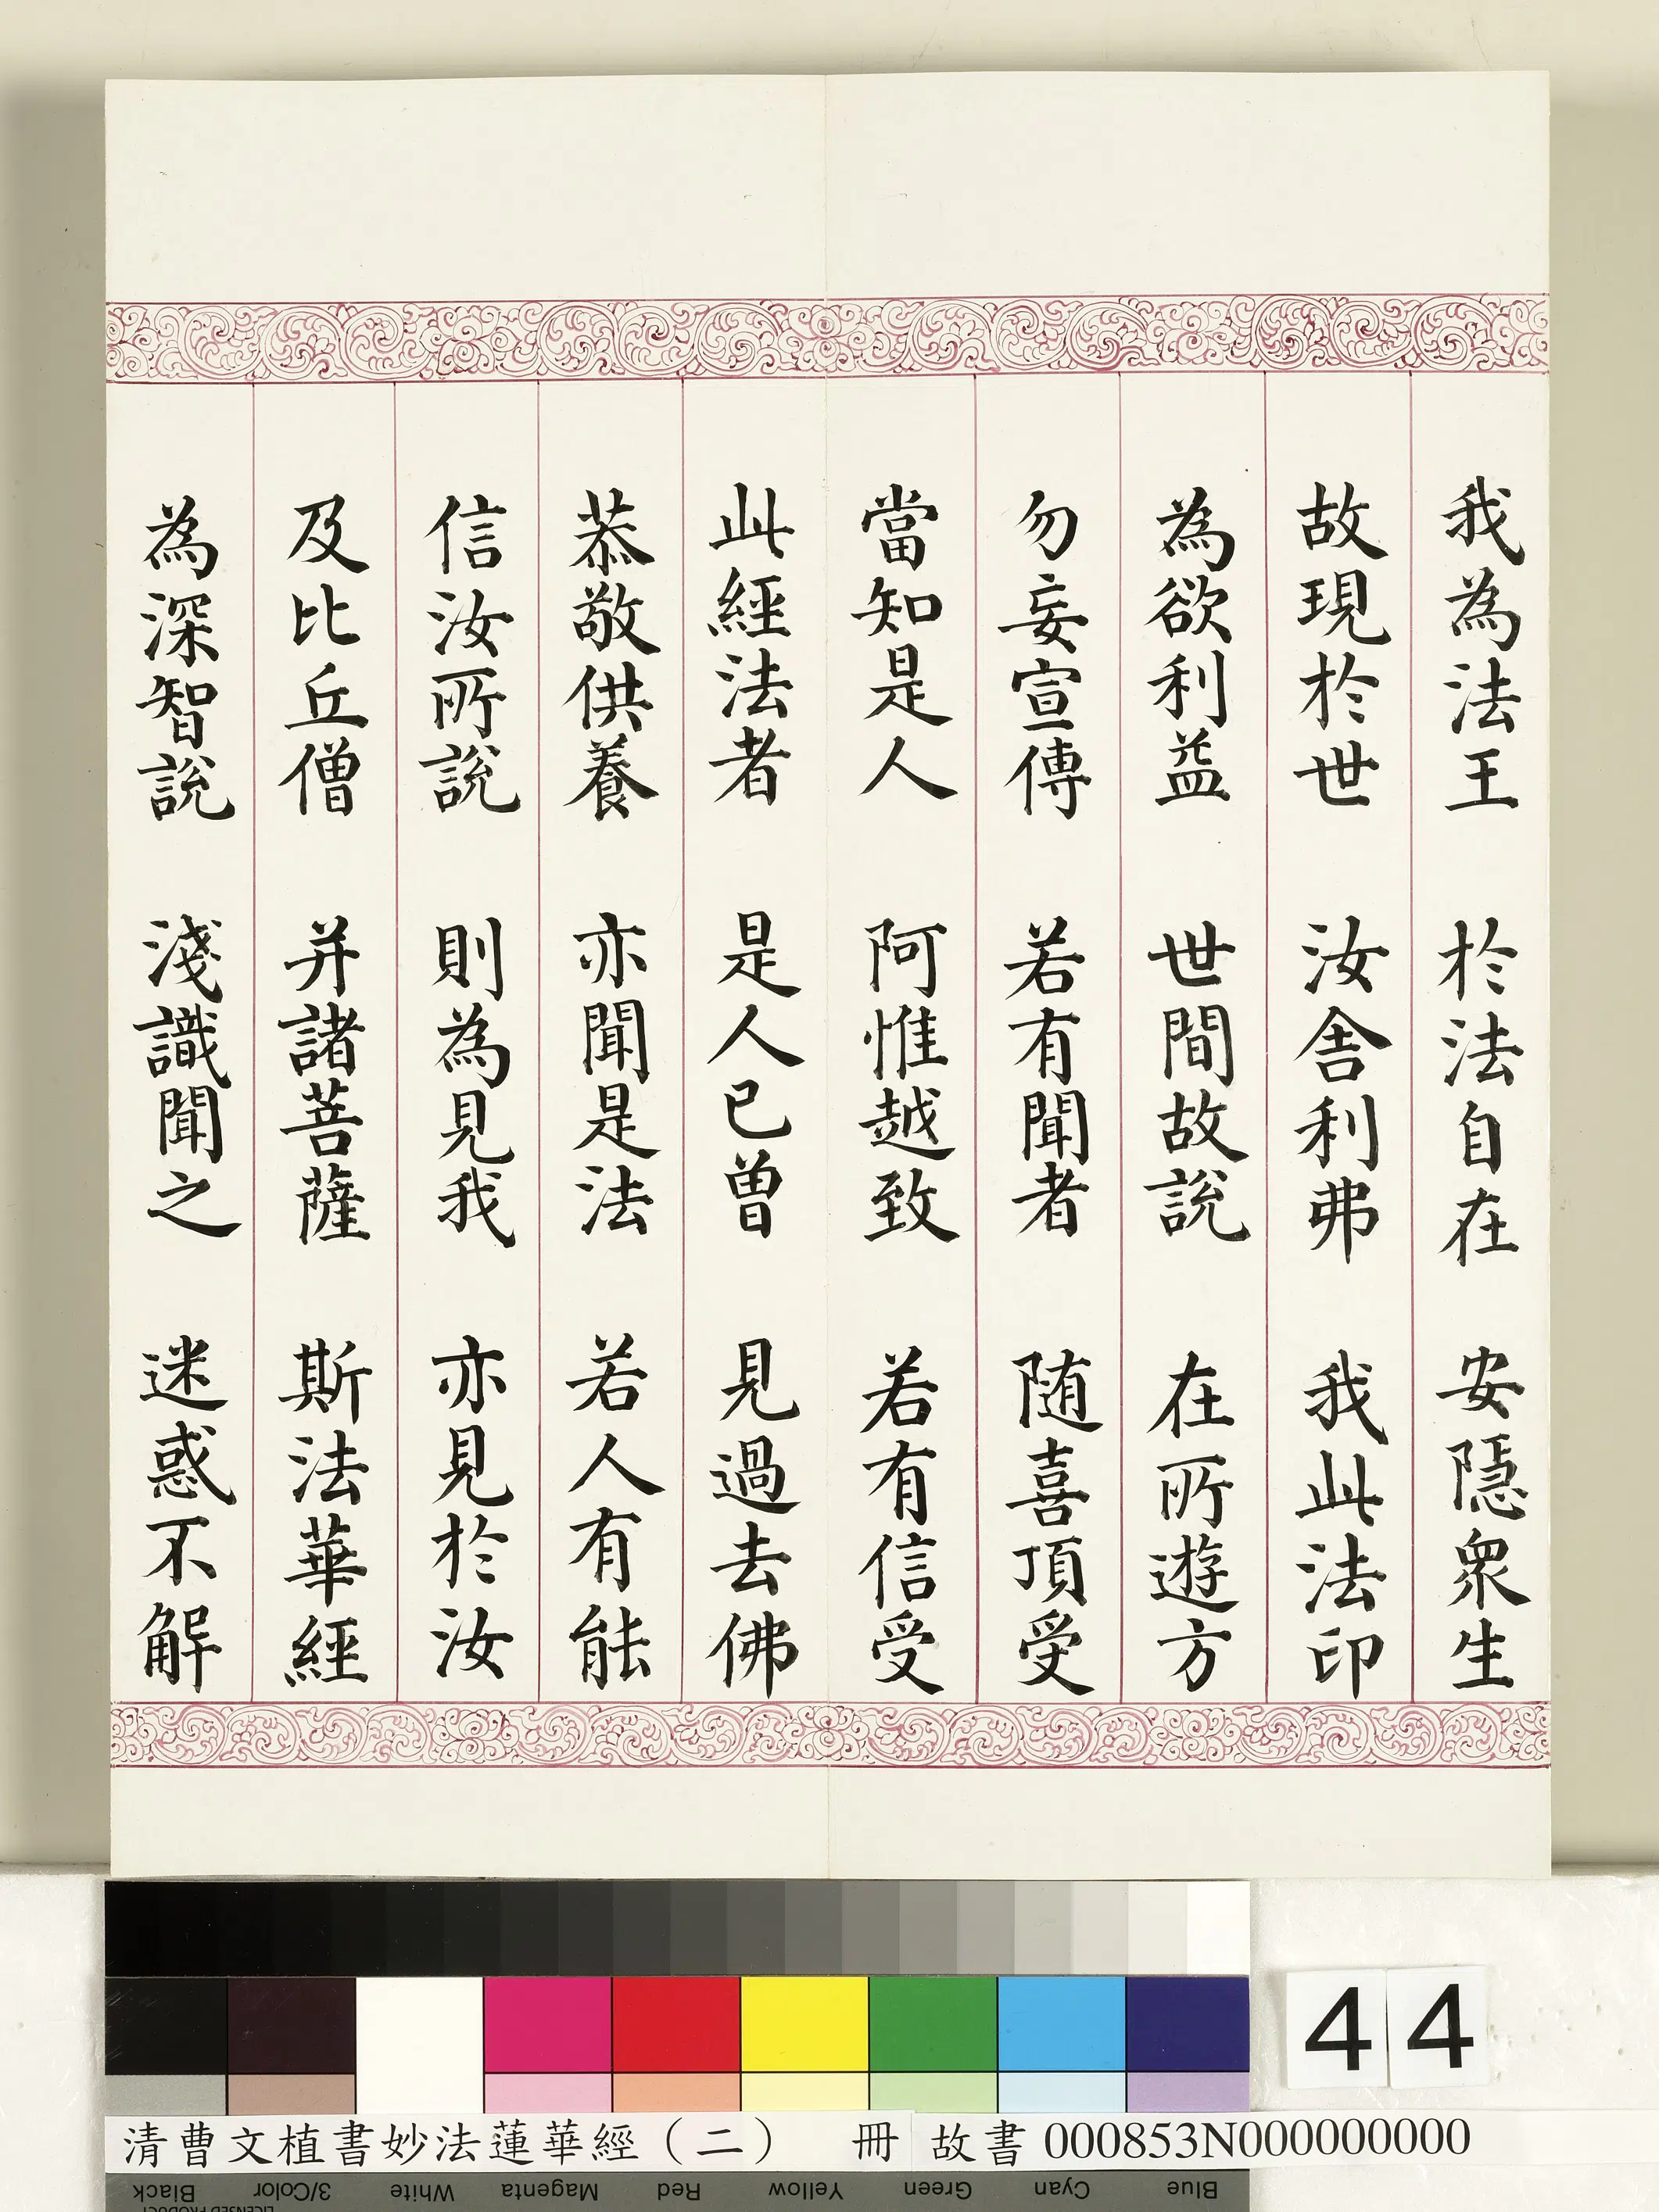 我為法王 於法自在 安隱衆生
故現於世 汝舍利弗 我此法印
為欲利益 世間故說 在所遊方
勿妄宣傳 若有聞者 随喜頂受
當知是人 阿惟越致 若有信受
此經法者 是人已曾 見過去佛
恭敬供養 亦聞是法 若人有能
信汝所說 則為見我 亦見於汝
及比丘僧 并諸菩薩 斯法華經
為深智說 淺識聞之 迷惑不解
44
清曹文植書妙法蓮華經（二） 冊 故書 000853N000000000
Blue Cyan Green Yellow Red Magenta White 3/Color Black
LICENSED PRODUCT